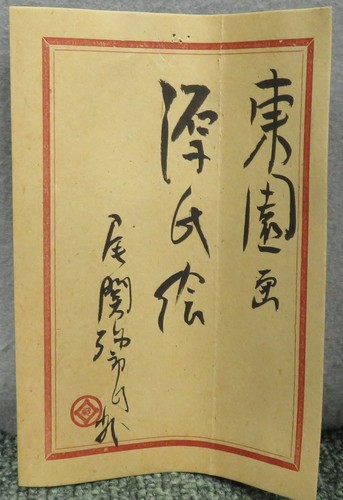 東園画
源氏絵
尾関弥